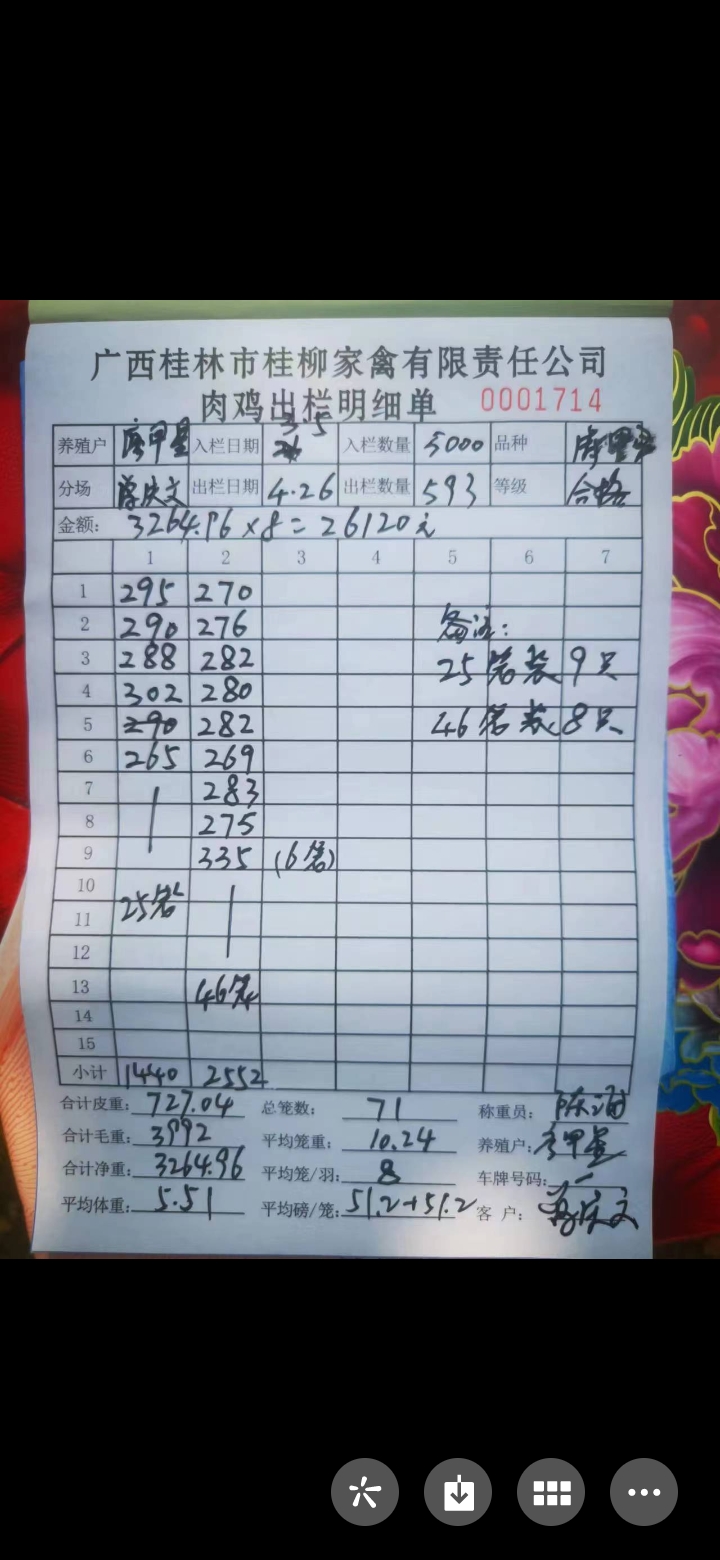 广西桂林市桂柳家禽有限责任公司
肉鸡出栏明细单 0001714
养殖户 唐甲星 入栏日期 3.5 入栏数量 5000 品种
分场 蒋庆文 出栏日期 4.26 出栏数量 593 等级 合格
金额: 3264.96×8=26120元
1 2 3 4 5 6 7
1 295 270
2 290 276 备注:
3 288 282 25笼装9只
4 302 280
5 290 282 46笼装8只
6 265 269
7 283
8 275
9 335 (6笼)
10
11 25笼
12
13 46笼
14
15
小计 1440 2552
合计皮重: 727.04 总笼数: 71 称重员: 陈
合计毛重: 3992 平均笼重: 10.24 养殖户: 唐甲星
合计净重: 3264.96 平均笼/羽: 8 车牌号码:
平均体重: 5.51 平均磅/笼: 51.2+51.2 客 户: 蒋庆文